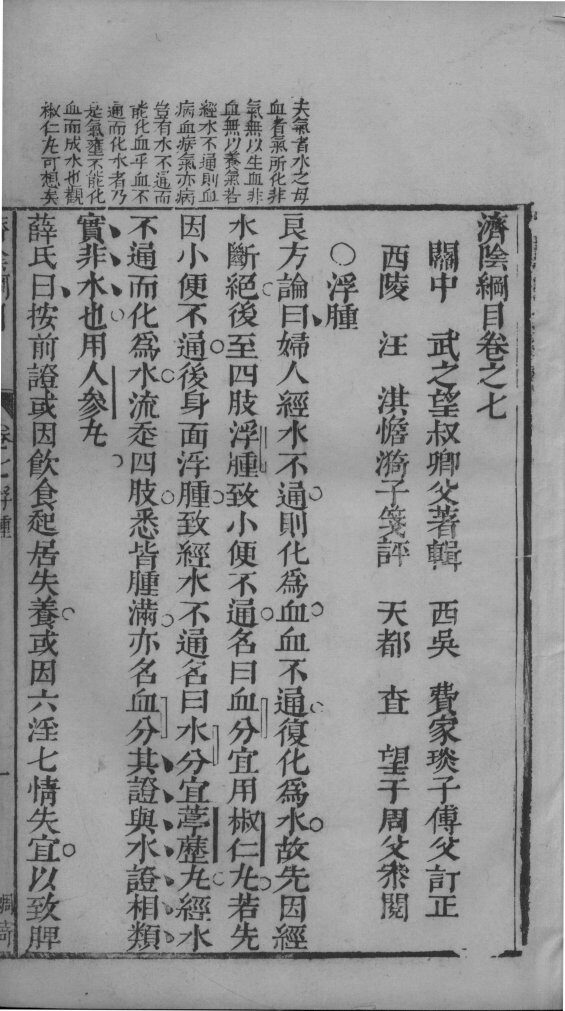 夫氣者水之母
血者氣所化非
氣無以生血非
血無以養氣若
經水不通則血
病血病氣亦病
豈有水不通而
能化血乎血不
通而化水者乃
是氣壅不能化
血而成水也觀
椒仁丸可想矣
濟陰綱目卷之七
關中 武之望叔卿父著輯 西吳 費家琰子傅父訂正
西陵 汪淇憺漪子箋評 天都 查望于周父叅閱
○浮腫
良方論曰婦人經水不通則化爲血血不通復化爲水故先因經
水斷絕後至四肢浮腫致小便不通名曰血分宜用椒仁丸若先
因小便不通後身面浮腫致經水不通名曰水分宜葶藶丸經水
不通而化爲水流走四肢悉皆腫滿亦名血分其證與水證相類
實非水也用人參丸
薛氏曰按前證或因飲食起居失養或因六淫七情失宜以致脾